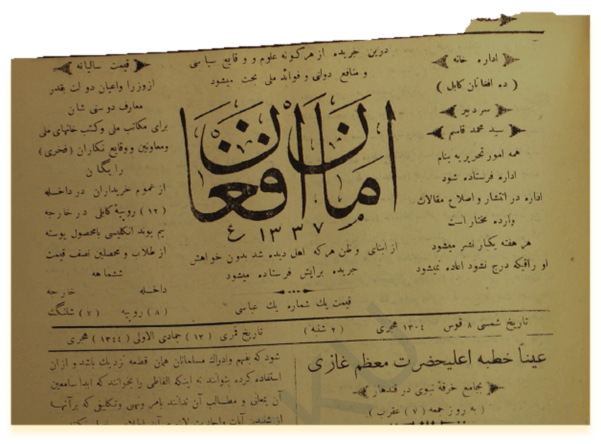 اداره خانه
( ده افغانان کابل )
سردبیر
سید محمد قاسم
همه امور تحریریه بنام
اداره فرستاده شود
اداره در انتشار و اصلاح مقالات
وارده مختار است
هر هفته یکبار نشر میشود
اوراقیکه درج نشود اعاده نمیشود
درین جریده از هرگونه علوم و وقایع سیاسی
و منافع دولتی و فوائد ملی بحث میشود
امان افغان
۱۳۳۷ ع
از ابنای وطن هرکه اهل دیده شد بدون خواهش
جریده برایش فرستاده میشود
قیمت یك شماره یك عباسی
قیمت سالیانه
از وزرا واعیان دولت بقدر
معارف دوستی شان
برای مکاتب ملی وکتب خانهای ملی
ومعاونین ووقایع نگاران (فخری)
رایگان
از عموم خریداران در داخله
(۱۲) روپیهٔ کابلی در خارجه
یم پوند انگلیسی بامحصول پوسته
از طلاب و محصلین نصف قیمت
ششماهه
داخله خارجه
(۸) روپیه (۷) شلنگ
تاریخ شمسی ۸ قوس ۱۳۰۴ هجری (۲ شنبه) تاریخ قمری (۱۳) جمادی الاولی (۱۳۴۴) هجری
عیناً خطبه اعلیحضرت معظم غازی
بجامع خرقهٔ نبوی در قندهار
(به روز جمعه (۷) عقرب).
شود که بفهم وادراك مسلمانان همان قطعه نزدیك باشد و ازان
استفاده کرده بتوانند نه اینکه الفاظی را بخوانند که ابدا سامعین
آن بمعانی و مطالب آن ندانند بامر ونهی وتکلیفی که برآنها